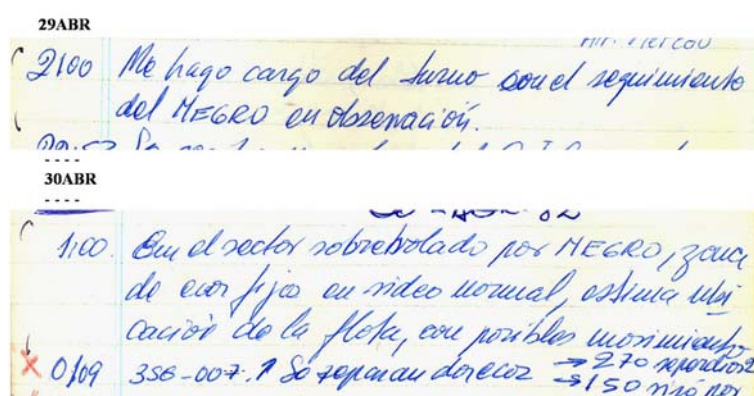 29ABR
2100 Me hago cargo del turno con el seguimiento
del NEGRO en observación.
- - - -
30ABR
- - - -
1:00. En el sector sobrevolado por NEGRO, zona
de ecos fijos en video normal, estima ubi
cación de la flota, con posibles movimiento
0109 356-007. Se separan dos ecos → 270
→ 150 por